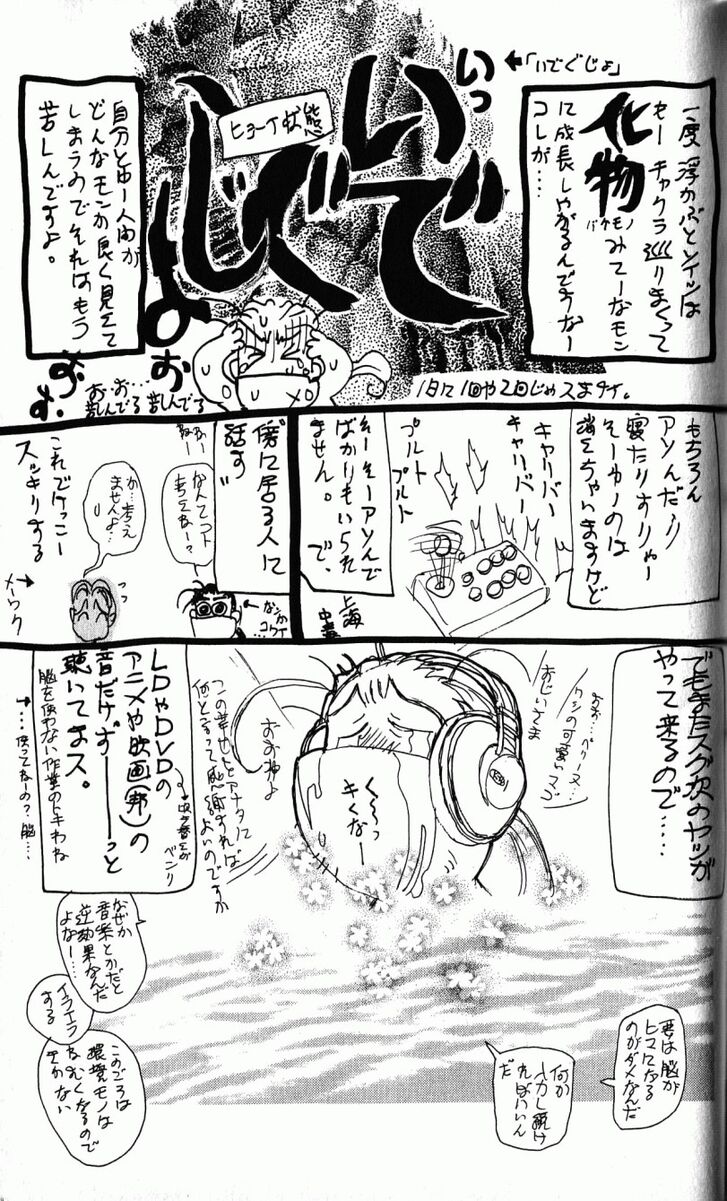 一度浮かぶとソイツは
もーチャクラ巡りまくって
化物
バケモノ
みてーなモン
に成長しやがるんですなー
コレが…
←「いでぐじょ」
いっ
いで
ヒョーイ状態
自分とゆー人間が
どんなモンか良く見えて
しまうのでそれはもう
苦しんですよ。
お
お・お…
苦しんでる
苦しんでる
1日に1回や2回じゃスまナイ。
もちろん
アソんだり
寝たりすりゃー
そーゆーのは
消えちゃいますけど
キャリバー
キャリバー
プルト
プルト
そーそーアソんで
ばかりもいられ
ません。で、
上海
中毒
傍に居る人に
話す
なんてコト
考えねー?
ねー
なんか
コワイ
か…考え
ませんよ…
これでけっこー
スッキリする
メーワク
でもまたスグ次のヤツが
やって来るので…
おお…ベリーヌ…
ワシの可愛いマゴ
おじいさま
く~っ
キくなー
おお神よ
この幸せとアナタに
何と言って感謝すればよいのですか
LDやDVDの
アニメや映画(邦)の
音だけずーーーっと
聴いてまス。
吹き替えが
ベンリ
脳を使わない作業のトキわね
…使ってねーの?脳…
なぜか
音楽とかだと
逆効果なんだ
よなー…
イライラ
する
このごろは
環境モノは
ねむくなるので
きかない
要は脳が
ヒマになる
のがダメなんだ
何か
入力し続け
ればいいん
だ